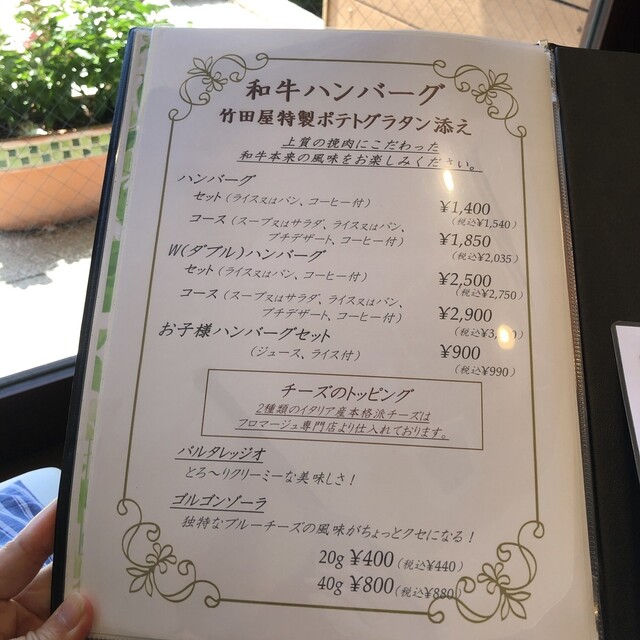 和牛ハンバーグ
竹田屋特製ポテトグラタン添え
上質の挽肉にこだわった
和牛本来の風味をお楽しみください。
ハンバーグ
セット(ライス又はパン、コーヒー付) ¥1,400
(税込¥1,540)
コース(スープ又はサラダ、ライス又はパン、
プチデザート、コーヒー付) ¥1,850
(税込¥2,035)
W(ダブル)ハンバーグ
セット(ライス又はパン、コーヒー付) ¥2,500
(税込¥2,750)
コース(スープ又はサラダ、ライス又はパン、
プチデザート、コーヒー付) ¥2,900
お子様ハンバーグセット
(ジュース、ライス付) ¥900
(税込¥990)
チーズのトッピング
2種類のイタリア産本格派チーズは
フロマージュ専門店より仕入れております。
バルタレッジオ
とろ〜りクリーミーな美味しさ!
ゴルゴンゾーラ
独特なブルーチーズの風味がちょっとクセになる!
20g ¥400(税込¥440)
40g ¥800(税込¥880)